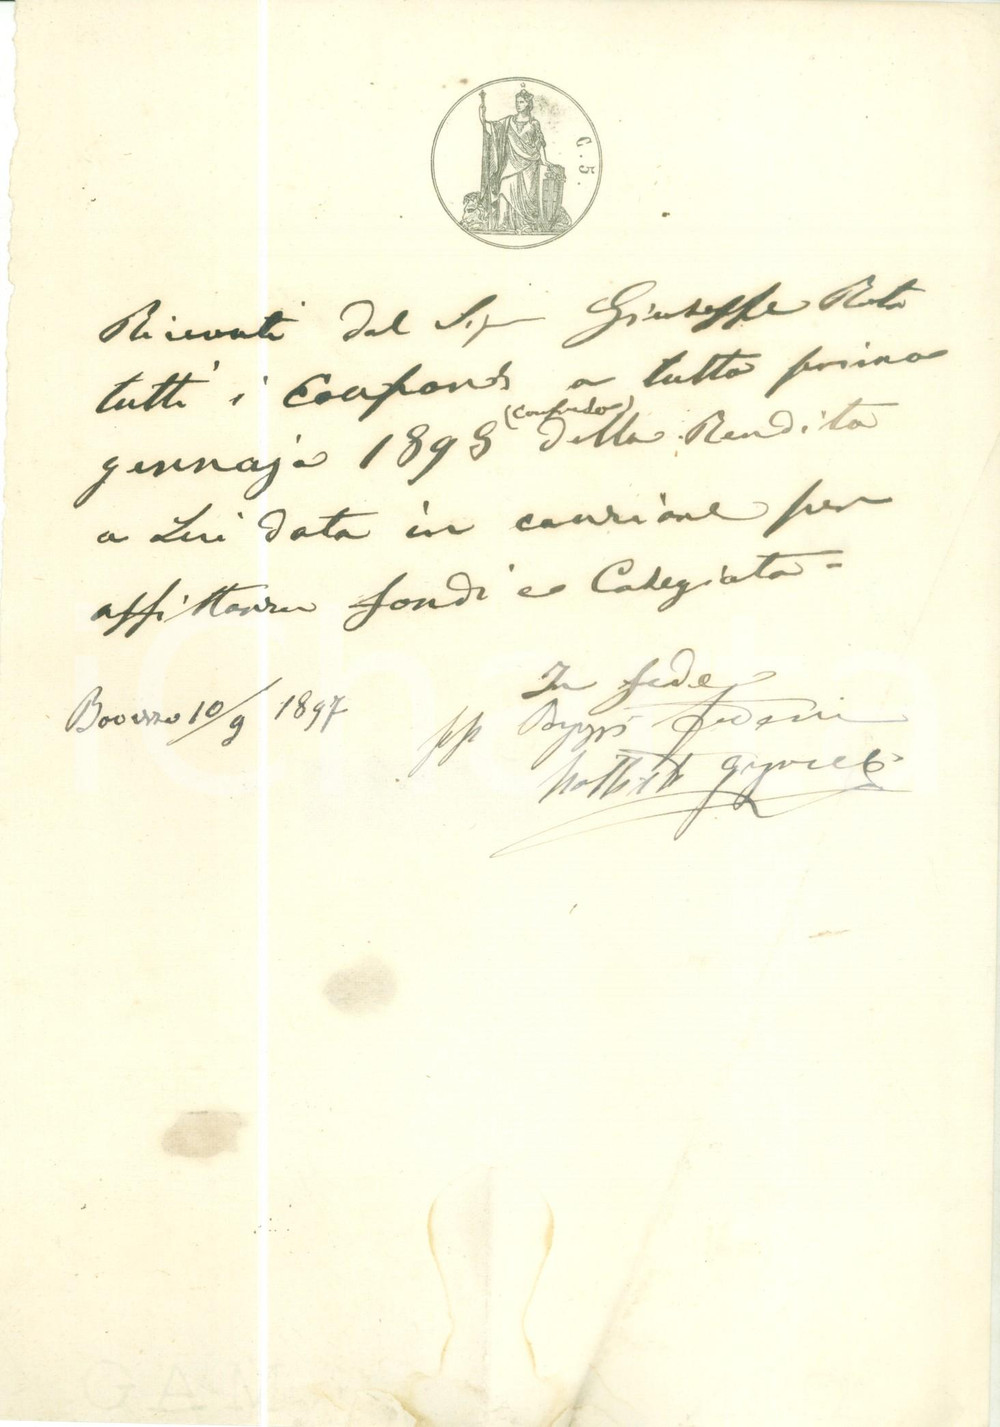 C. 5.
Ricevuti dal Sig Giuseppe Rota
tutti i Coupons a tutto primo
gennajo 1898 (compreso) della Rendita
a Lui data in cauzione per
affittanza fondi ex Collegiata =
In fede
Bovezzo 10/9 1897
pp